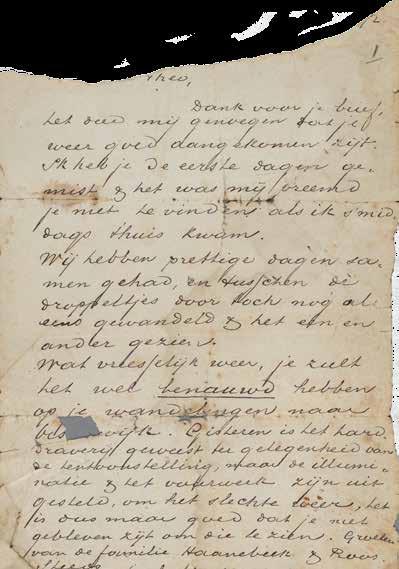 1
Theo,
Dank voor je brief,
het deed mij genoegen dat je
weer goed aangekomen zijt.
Ik heb je de eerste dagen ge-
mist & het was mij vreemd
je niet te vinden als ik 's mid-
dags t'huis kwam.
Wij hebben prettige dagen sa-
men gehad, en tusschen de
droppeltjes door toch nog al
eens gewandeld & het een en
ander gezien.
Wat vreesselijk weer, je zult
het wel benauwd hebben
op je wandelingen naar
Gisteren is het hard-
draverij geweest ter gelegenheid van
de tentoonstelling, maar de illumi-
natie & het vuurwerk zijn uit
gesteld, om het slechte weer, het
is dus maar goed dat je niet
gebleven zijt om die te zien. Groeten
van de familie Haanebeek & Roos.